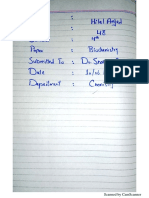 : Hilal Amjad
: 48
: 4th
Paper : Biochemistry
Submitted To : Dr
Date : 10/06
Department : Chemistry
Scanned by CamScanner